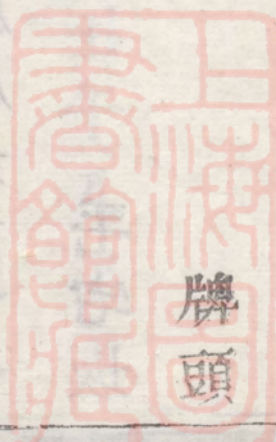 上海圖
書館藏
牌頭